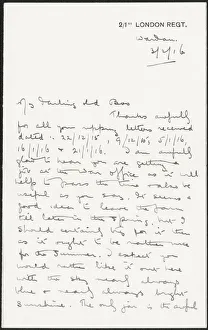 2/1ST LONDON REGT.
Wardan.
2/2/16
My Darling old Bos
Thanks awfully
for all your ripping letters received
dated :- 22/12/15, 9/12/15, 5/1/16,
16/1/16 & 21/1/16. I am awfully
glad to hear you are getting a
job at the War Office as it will
help to pass the time & also be
useful as you say. It seems a
good idea to leave the Farm
till later in the Spring, but I
should certainly go for it then
as it ought to be
for the Summer. I expect you
would rather like it over here
with the sky nearly always
blue & nearly always bright
sunshine. The only fear is the awful